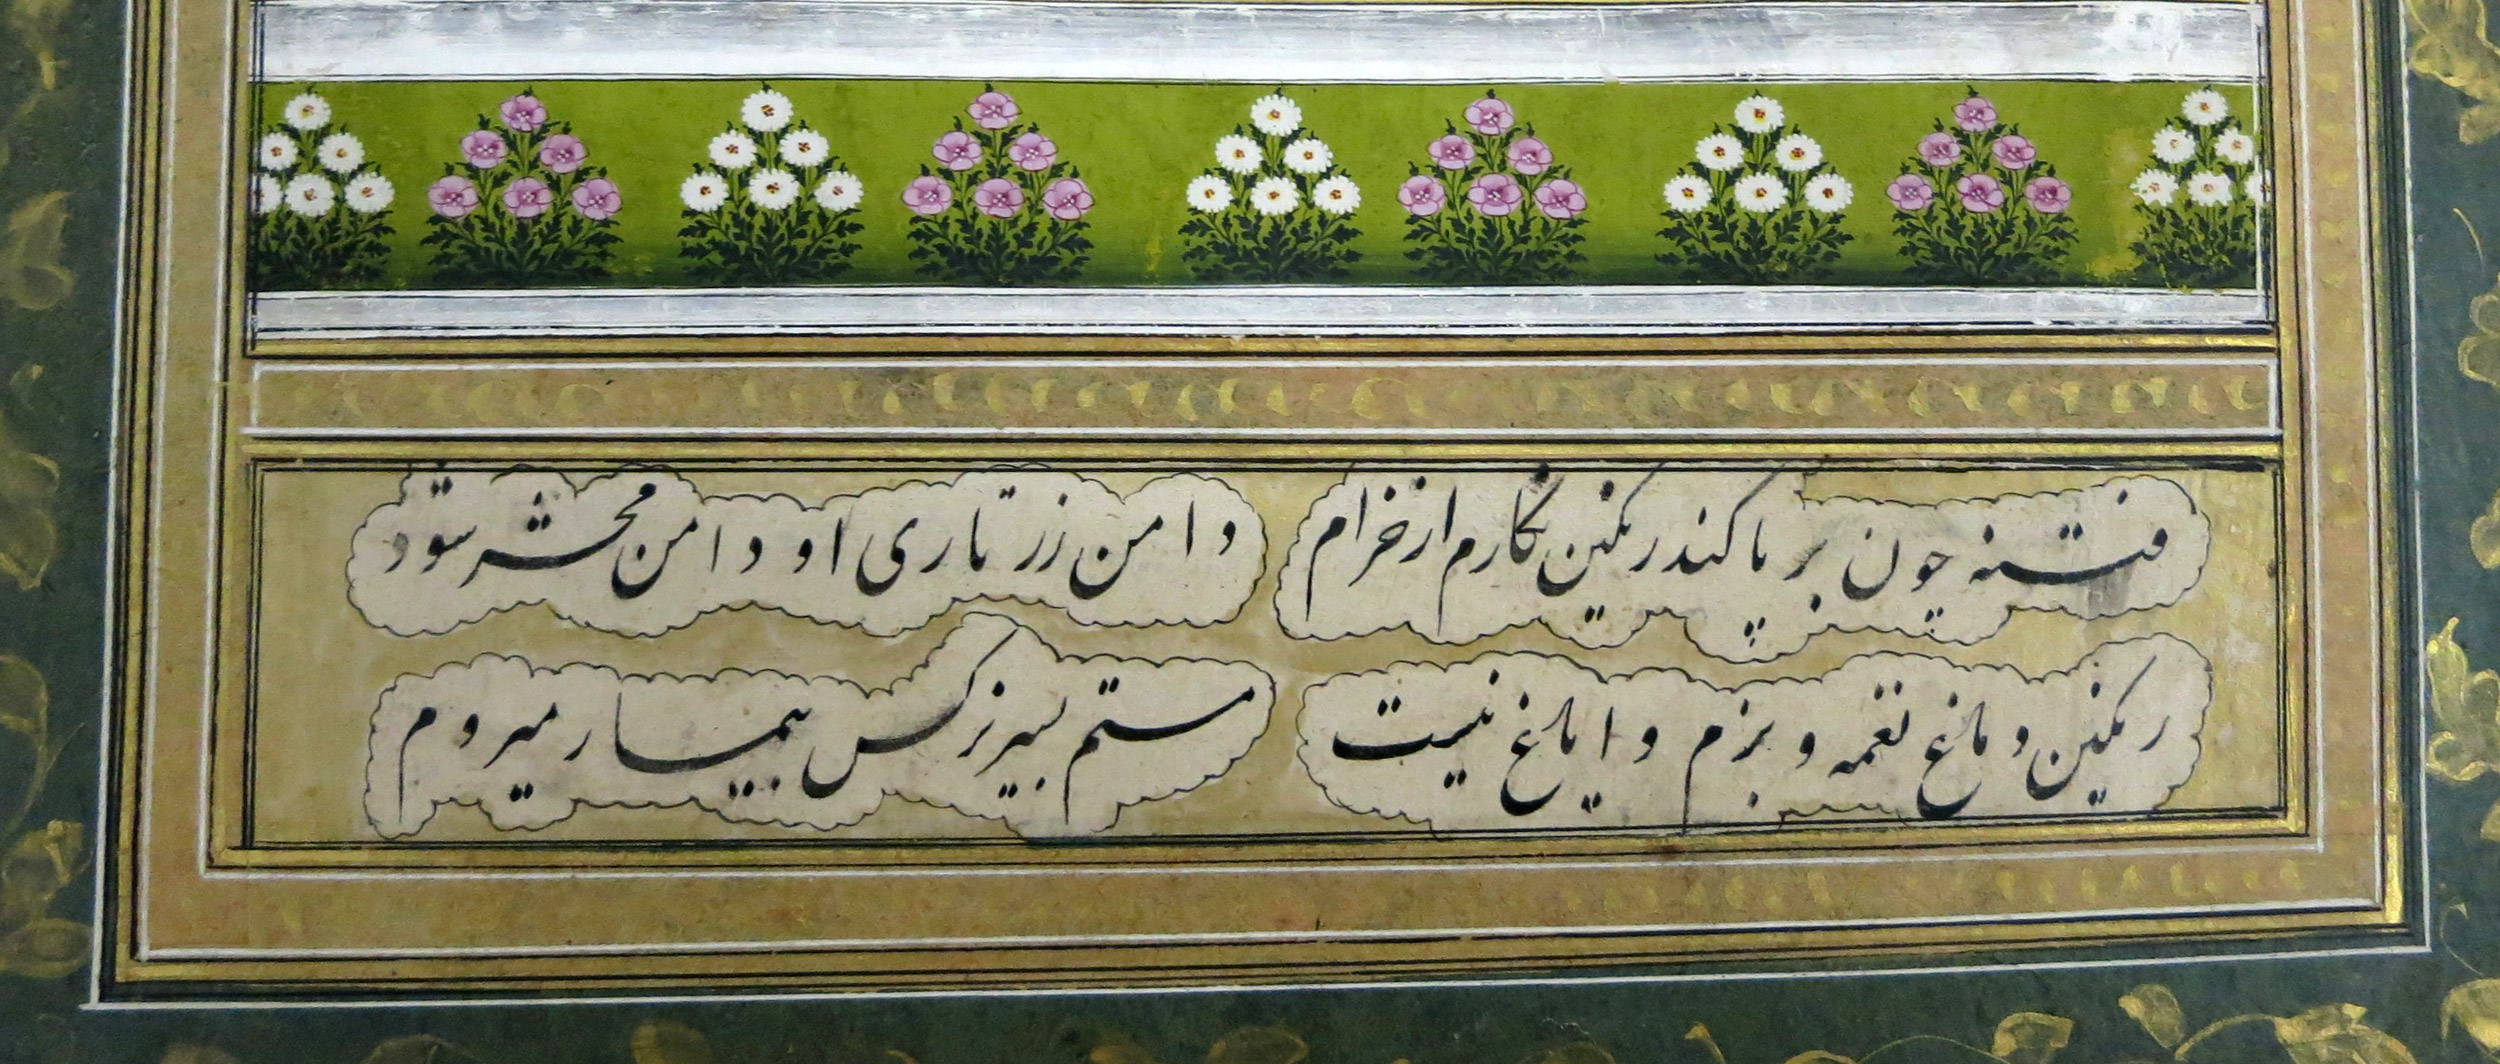 فتنه چون بر پا کند رنگین نگارم از خرام
دامن زرتاری او دامن محشر شود
رنگین دماغ نغمه و بزم و ایاغ نیست
مستم بسیر نرکس بیمار میروم